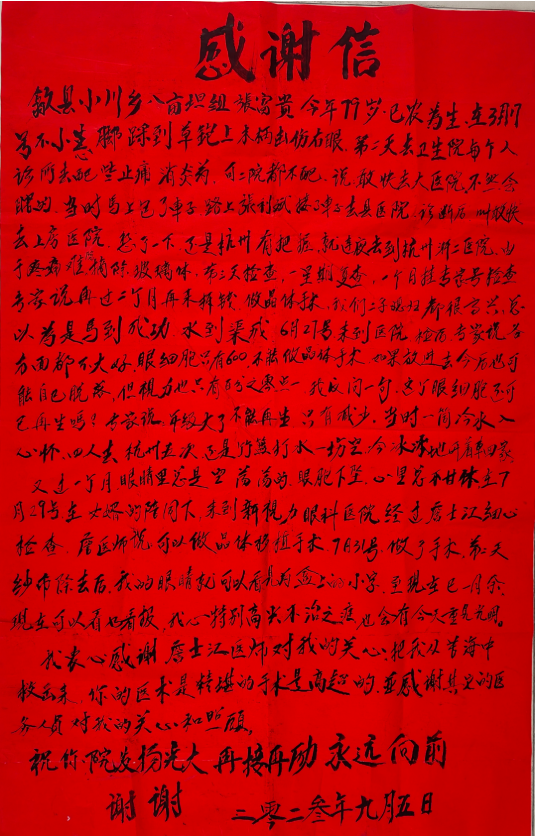 感谢信
歙县小川乡八亩坦组張富贵今年77岁.已农为生.在3月17
号不小心 脚踩到草锄上木柄击伤右眼.第二天去卫生院与个人
诊所去配些止痛消炎药,可二院都不配.说.敢快去大医院.不然会
瞎的.当时马上包了车子.路上張村或接了弹子去县医院.诊断后叫敢快
去上层医院.想了一下还是杭州有把握.就连夜去到杭州浙二医院.由
于疼痛难摘除玻璃体.第三天检查.一星期复查.一个月挂专家号检查
专家说再过二个月再来拆线做晶体手术.我们二子媳妇都很高兴.总
以为是马到成功 水到渠成 6月27号来到医院 检查专家说各
方面都不大好.眼细胞只有600不能做晶体手术 如果放进去今后也可
能自己脱落,但视力也只有百分之零点一 我反问一句.这个眼细胞还可
已再生吗?专家说.年级大了不能再生只有减少.当时一间冷水入
心怀.四人去杭州五次还是竹篮打水一场空.冷冰冰地开着车回家
又过一个月眼睛里总是空荡荡的.眼肥下坠.心里总不甘休在7
月29号在女婿的陪同下 来到新视力眼科医院经过詹士江细心
检查 詹医师说可以做晶体移植手术 7月31号.做了手术.第二天
纱布除去后.我的眼睛就可以看见 上的小字.至现在已一月余
现在可以看书看报,我心特别高兴不治之症也会有今天重见光明。
我衷心感谢詹士江医师对我的关心.把我从苦海中
救出来.你的医术是精堪的手术是高超的.并感谢其它的医
务人员对我的关心和照顾。
祝你院发扬光大 再接再励 永远向前
谢谢
二零二叁年九月五日